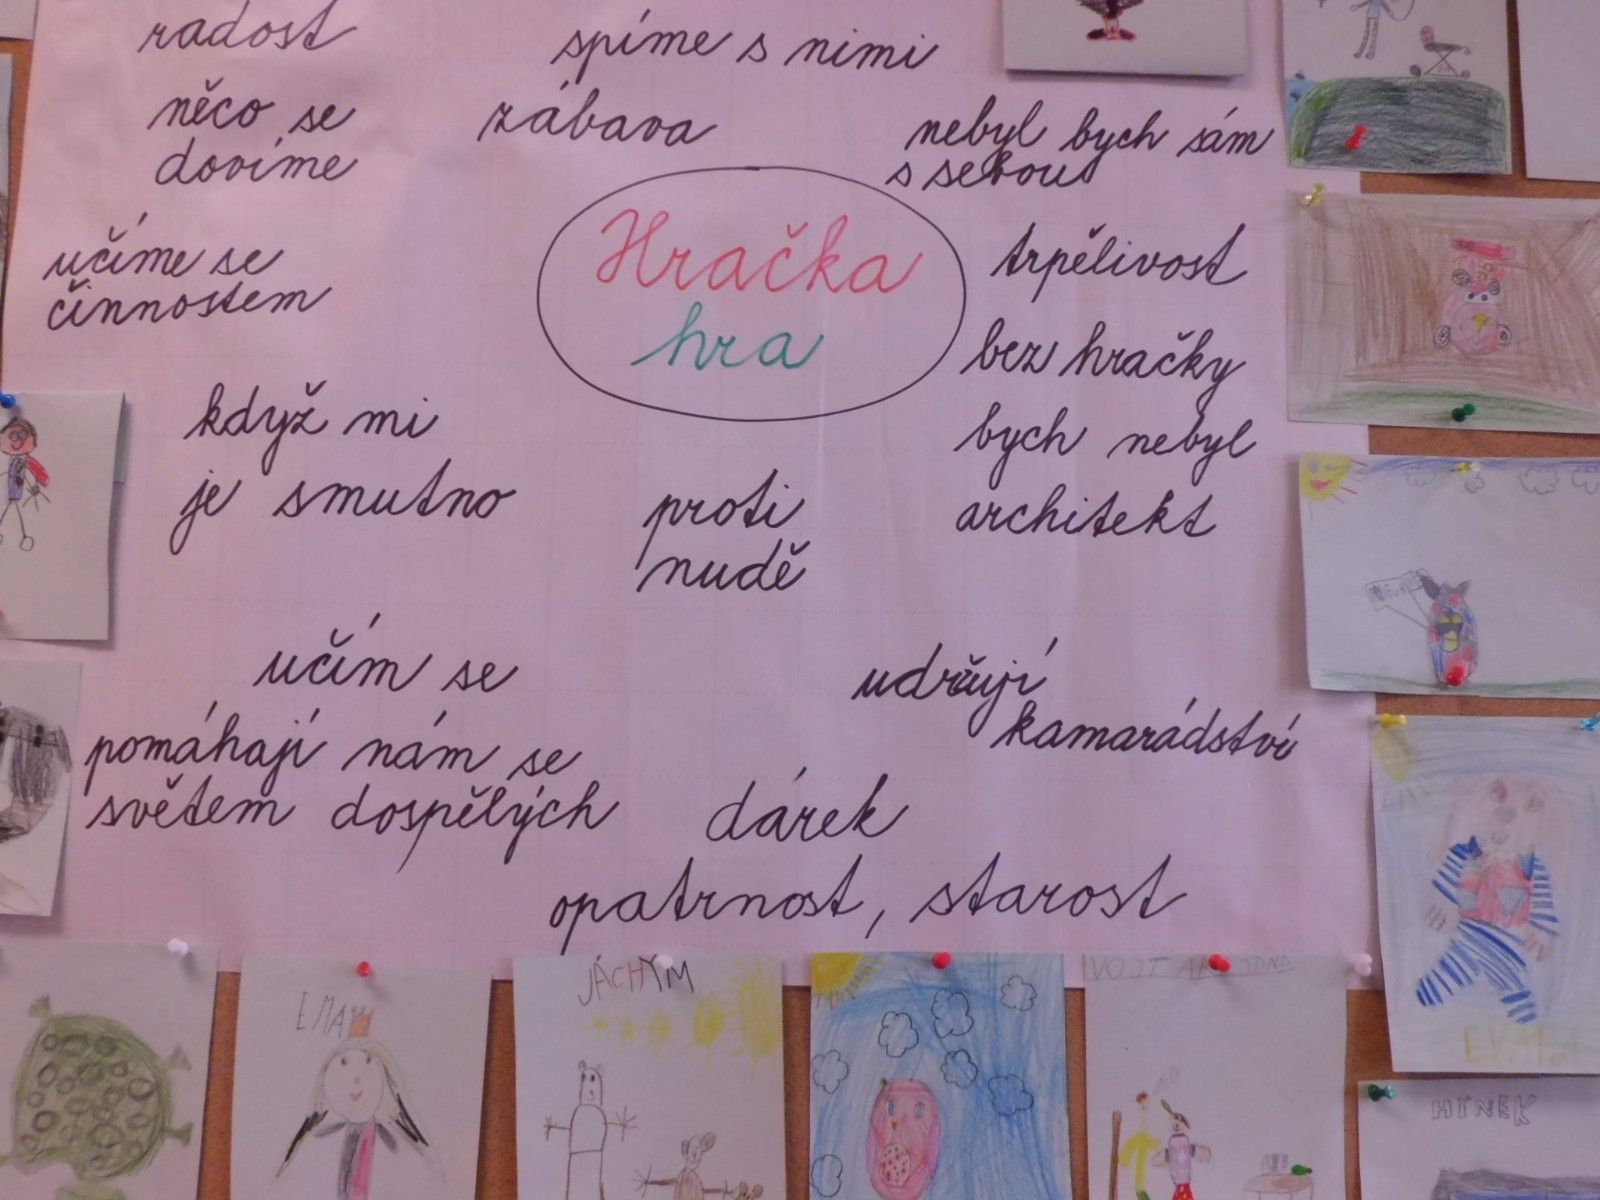 radost
spíme s nimi
něco se
dovíme
zábava
nebyl bych sám
s sebou
učíme se
činnostem
Hračka
hra
trpělivost
bez hračky
bych nebyl
architekt
když mi
je smutno
proti
nudě
učím se
udržují
kamarádství
pomáhají nám se
světem dospělých
dárek
opatrnost, starost
EMA
JÁCHYM
HYNEK